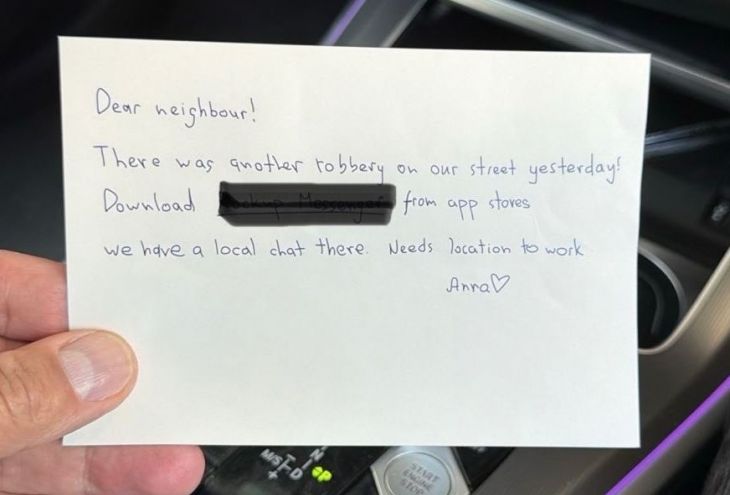 Dear neighbour!
There was another robbery on our street yesterday!
Download from app stores
we have a local chat there. Needs location to work
Anna♡
M S T N
+ D P
START
ENGINE
STOP